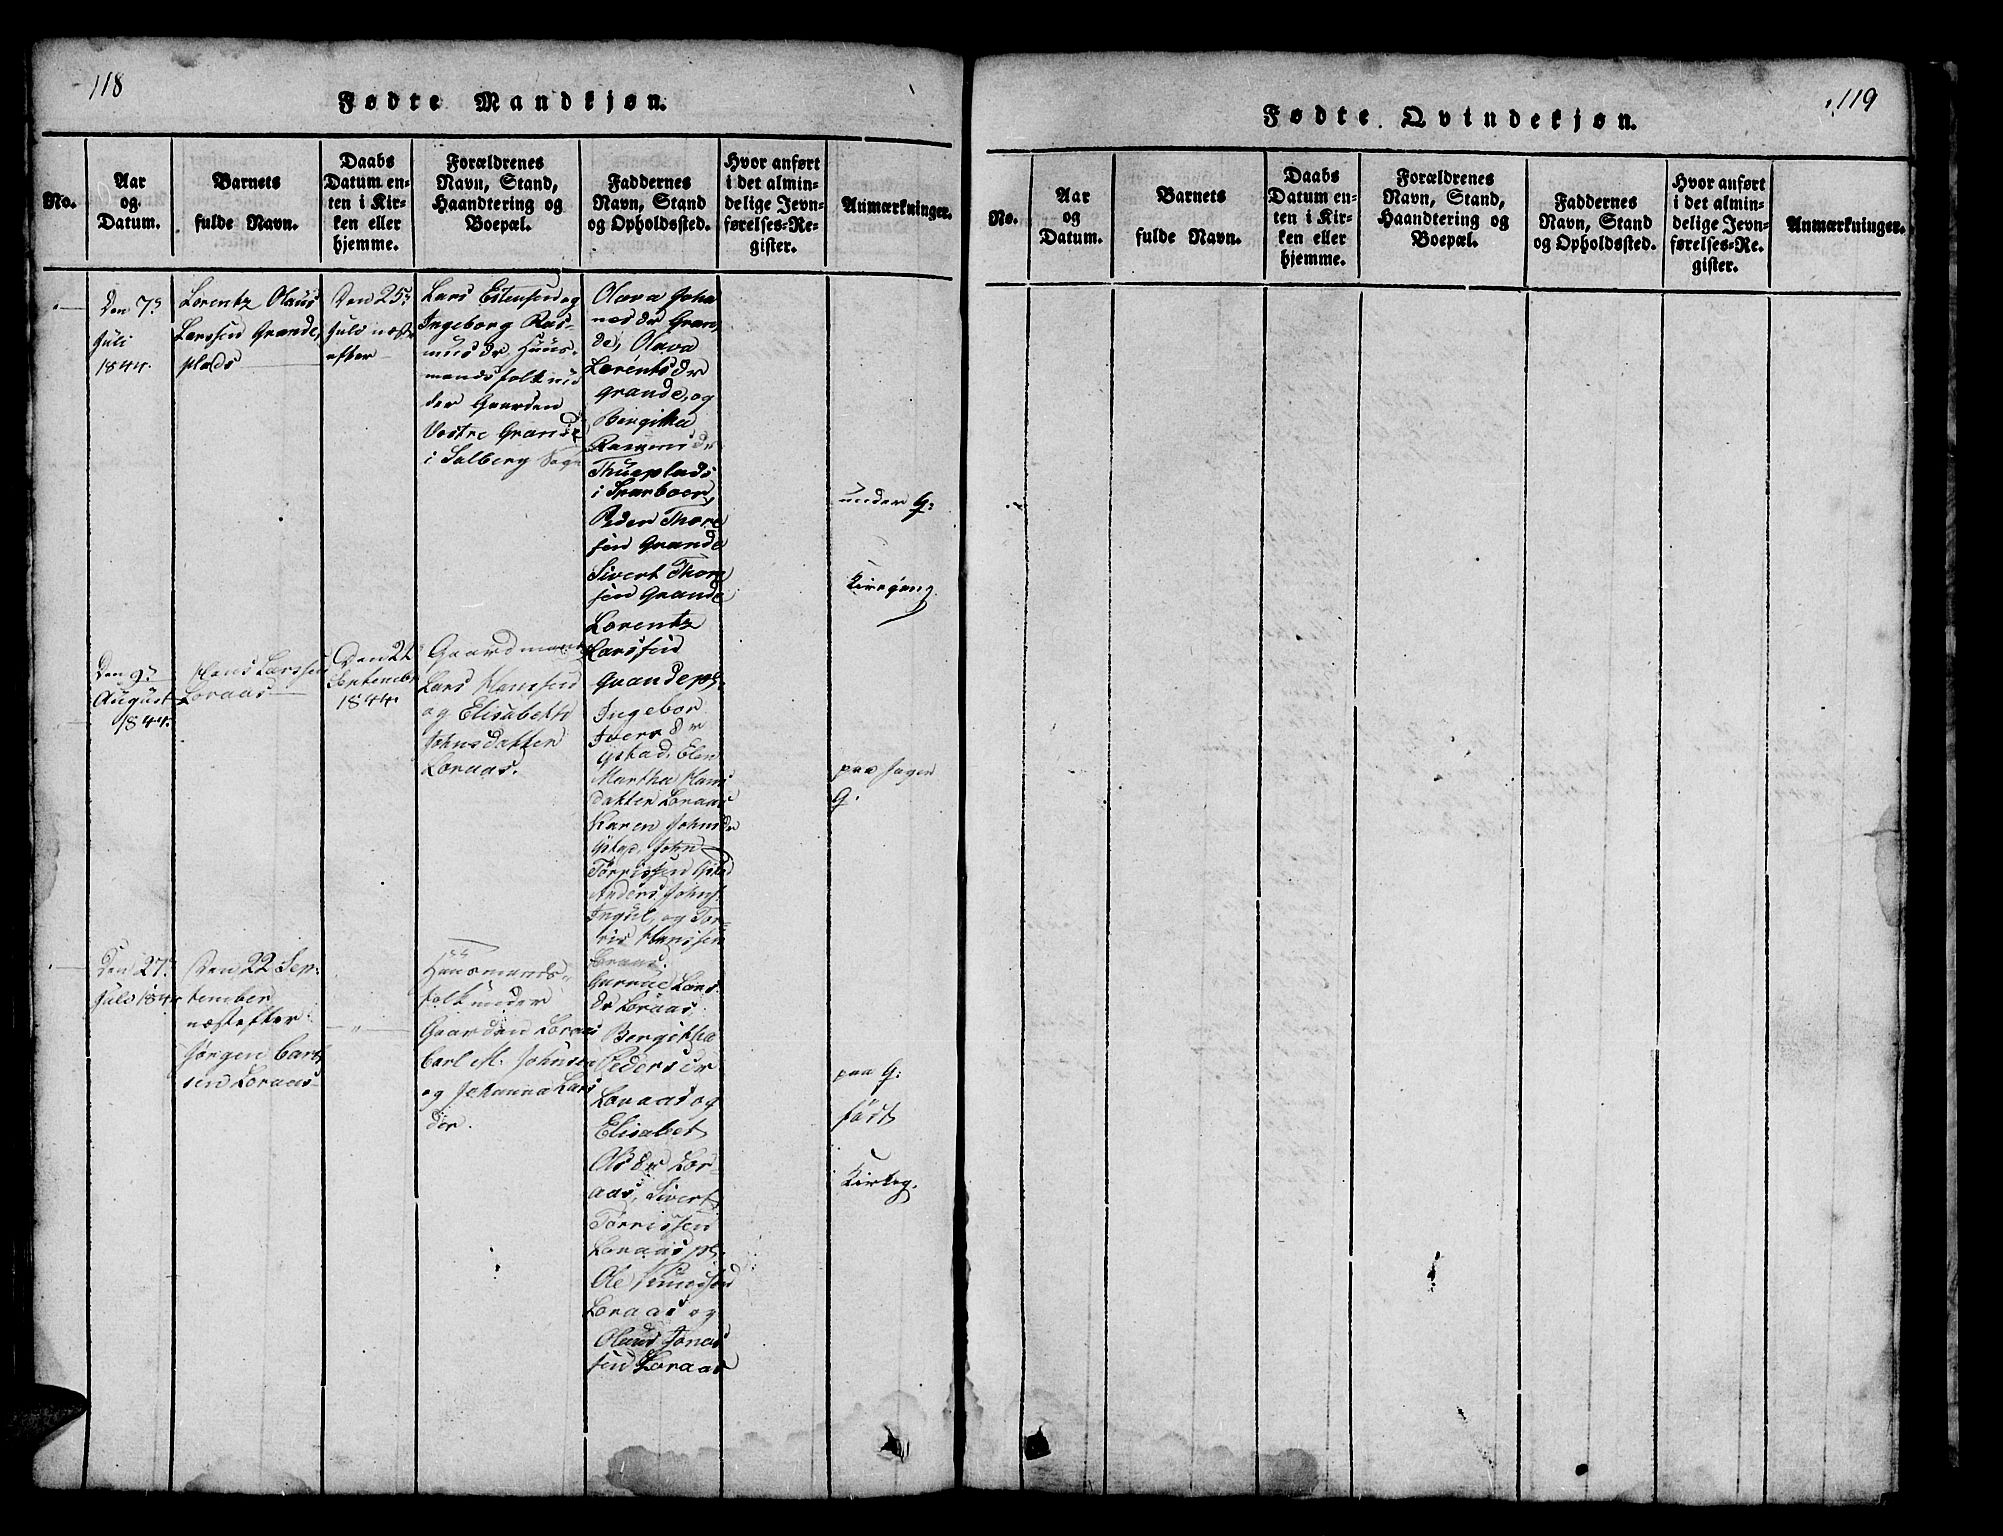 118
Fødte Mandkjøn.
No.
Aar
og
Datum.
Barnets
fulde Navn.
Daabs
Datum en-
ten i Kir-
ken eller
hjemme.
Forældrenes
Navn, Stand,
Haandtering og
Boepæl.
Faddernes
Navn, Stand
og Opholdssted.
Hvor anført
i det almin-
delige Jevn-
førelses-Re-
gister.
Anmærkninger.
Den 7de
Juli
1844.
Lorentz Olaus
Larssen Grande,
plads
Den 25de
Juli næst
efter
Lars Estensen og
Ingeborg Ras-
musdr. Huus-
mandsfolk un
der Gaarden
Vestre Grande
i Salberg Sogn
Olava Joha
nesdr Gran
de, Olava
Lorentsdr
Grande, og
Bergitha
Rasmusdr
Thueplads
i Sparboen,
Peder Thore
sen Grande
Sivert Thore
sen Grande
Lorentz
Larssen
Grandepl.
under G:
Kiregang
Den 9de
August
1844.
Hans Larssen
Loraas
Den 22
September
1844.
Gaardmand
Lars Hanssen
og Elisabeth
Johnsdatter
Loraas.
Ingebor
Iversdr
Ystad, Elen
Martha Hans
datter Loraas
Karen Johnsdr
Ystad, John
Tørrissen Ystad
Anders Johns.
Ingul, og Tør-
ris Hanssen
Loraas.
paa
G.
Den 27de
Juli 1844
Den 22 Sep-
tember
næstefter
Jørgen Carl
sen Loraas
"
Huusmands-
folk under
Gaarden Loraas
Carl M. Johnsen
og Johanna Lars
dtr.
Gurrue Lars
dr Loraas
Bergitha
Pedersdr
Loraas og
Elisabet
Olsdr Lor-
aas, Sivert
Tørrissen
Loraas pl.
Ole Knudsen
Loraas og
Olaus Jonas
sen Loraas
paa G:
født
Kirkeg.
119
Fødte Qvindekjøn.
No.
Aar
og
Datum.
Barnets
fulde Navn.
Daabs
Datum en-
ten i Kir-
ken eller
hjemme.
Forældrenes
Navn, Stand,
Haandtering og
Boepæl.
Faddernes
Navn, Stand
og Opholdssted.
Hvor anført
i det almin-
delige Jevn-
førelses-Re-
gister.
Anmærkninger.